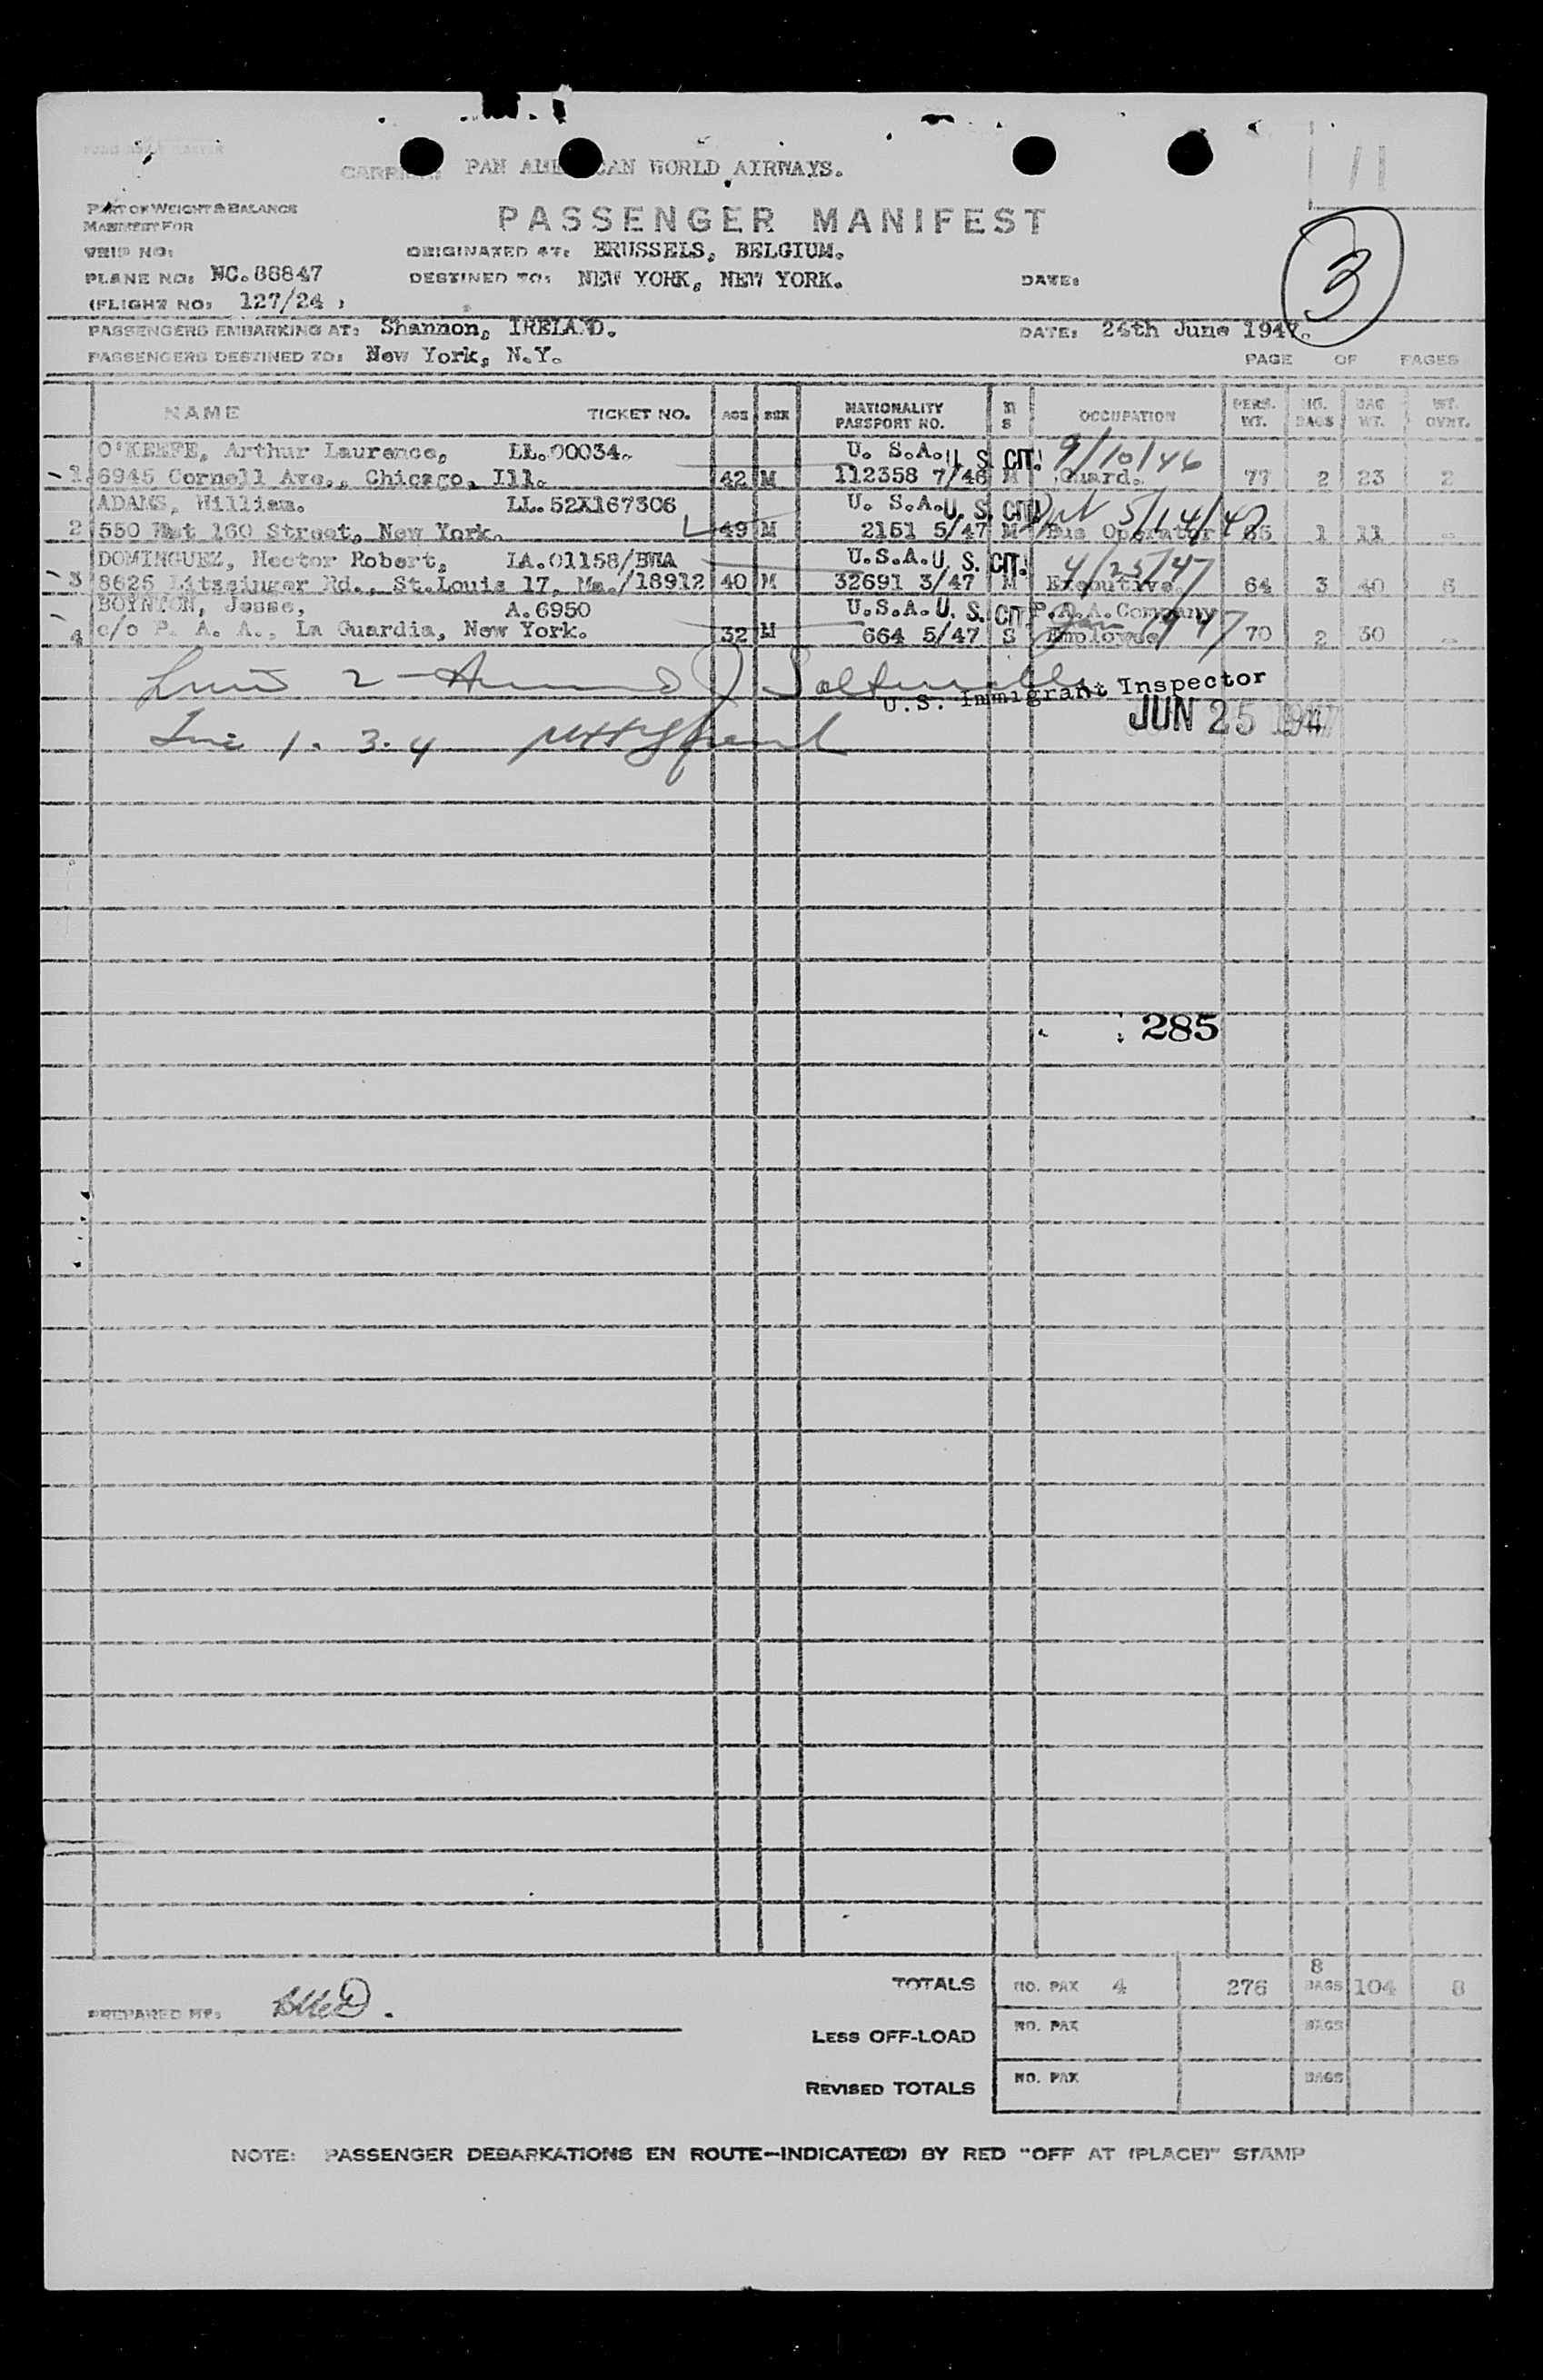 CARRIER: PAN AMERICAN WORLD AIRWAYS.
11
PART OF WEIGHT & BALANCE
MANIFEST FOR
PASSENGER MANIFEST
3
TRIP NO:
ORIGINATED AT: BRUSSELS, BELGIUM.
PLANE NO: NC.88847
DESTINED TO: NEW YORK, NEW YORK.
DATE:
(FLIGHT NO: 127/24 )
PASSENGERS EMBARKING AT: Shannon, IRELAND.
DATE: 24th June 1947.
PASSENGERS DESTINED TO: New York, N.Y.
PAGE OF PAGES
NAME TICKET NO. AGE SEX NATIONALITY PASSPORT NO. M S OCCUPATION PERS. WT. NO. BAGS BAG WT. WT. OVHT.
O'KEEFE, Arthur Laurence, LL.00034. U. S.A. U. S. CIT. 9/10/46
1 6945 Cornell Ave., Chicago, Ill. 42 M 112358 7/46 M Guard. 77 2 23 2
ADAMS, William. LL.52X167306 U. S.A. U. S. CIT. 5/14/47
2 550 West 160 Street, New York. 49 M 2151 5/47 M Bus Operator 65 1 11 -
DOMINGUEZ, Hector Robert, LA.01158/BWA U.S.A. U. S. CIT. 4/25/47
3 8625 Litzsinger Rd., St.Louis 17, Mo./18912 40 M 32691 3/47 M Executive. 64 3 40 6
BOYNTON, Jesse, A.6950 U.S.A. U. S. CIT P.A.A.Company
4 c/o P. A. A., La Guardia, New York. 32 M 664 5/47 S Employee 1947 70 2 30 -
Line 2
U.S. Immigrant Inspector
JUN 25 1947
Line 1. 3. 4
285
TOTALS NO. PAX 4 276 8 BAGS 104 8
PREPARED BY:
LESS OFF-LOAD NO. PAX BAGS
REVISED TOTALS NO. PAX BAGS
NOTE: PASSENGER DEBARKATIONS EN ROUTE—INDICATE(D) BY RED "OFF AT (PLACE)" STAMP